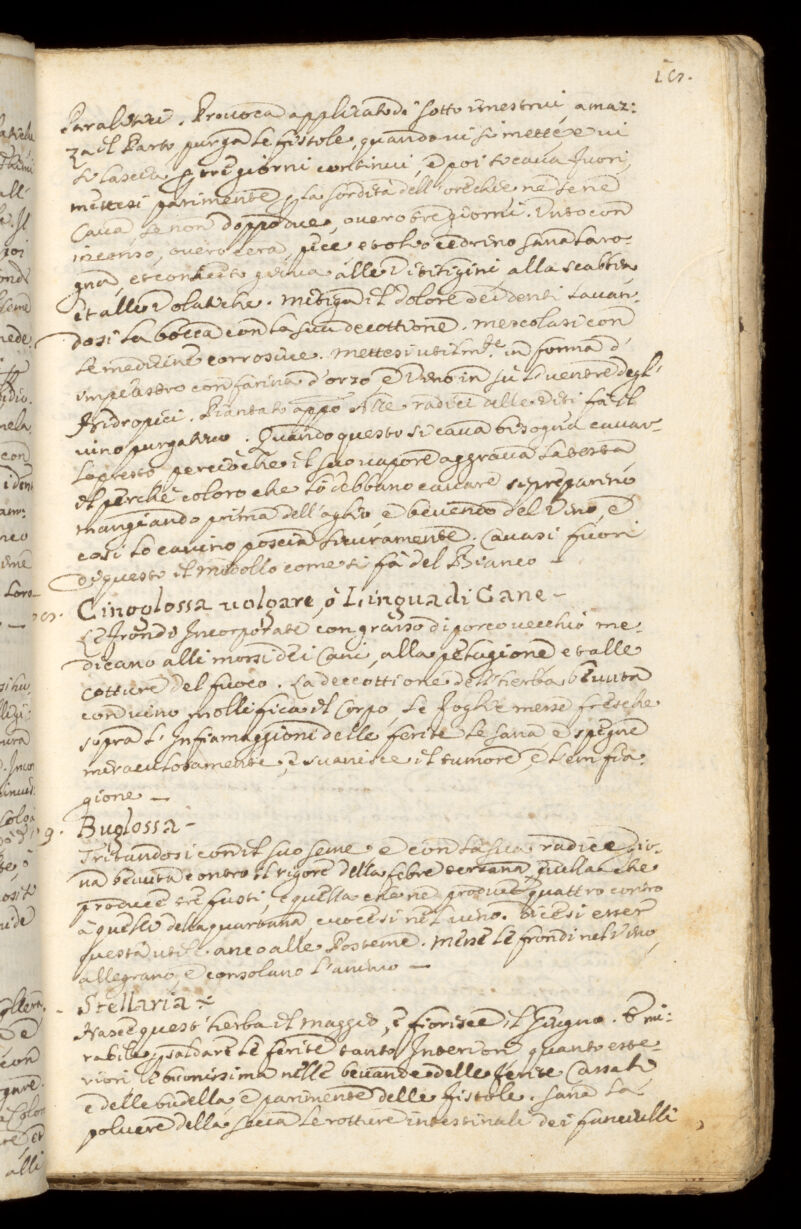 Paralitici. Provoca applicato di sotto i mestrui, amaz:
za il Parto purga le fistole, quando vi si mette, e vi
si lascia p tre giorni continui, e poi si cava fuori,
mettesi parimente p la sordità dell'orechie ne se ne
Cava, se non doppo due, overo tre giorni. Unto con
incenso, overo cera, pice et olio cedrino sana la ro-
gna, et con aceto giova alle Vitiligini alla scabbia
et alle Volatiche. mitiga il dolore dei denti lavan-
dosi la bocca con la sua decottione. mescolasi con
le medicine corrosive. mettesi utilmte in forma d'
impiastro con farina d'orzo e Vino in su 'l ventre degl'
Hidropici. Piantato appo alle radici alle viti fa il
vino purgativo. Quando questo si cava bisogna cavar-
lo presto perciòche il suo vapore aggrava la testa
il perche coloro che lo debbano cavare si preparino
mangiando prima dell'aglio e bevendo del Vino, e
così lo cavino poscia sicuramente. Cavasi fuori
di questo il midollo come si fà del Bianco –
Cinoglossa volgare, ò Lingua di Cane –
Le frondi Incorporate con grasso di porco vecchio me-
dicano alli morsi dei Cani, alla pelagione et alle
Cotture del fuoco. La decottione dell'herba bevuta
con vino mollifica il Corpo, le foglie messe fresche
sopra l'Infiamaggioni delle ferite le sana e spegne
miraculosamente, e svanisce il tumore, e l'enfia-
gione —
9. Buglossa –
Tritandosi con il suo seme e con la sua radice, gio-
va bevuta contro il rigore della febre terzana, quella che
produce tre fusti, e quella che ne produce quattro contro
à quello della quartana, cuocesi nel vino. Dicesi esser
questa utile anco alle Posteme. Messe le frondi nel Vino,
allegrano, e consolano l'animo —
Stellaria
Nasce quest'herba il maggio, e fiorisce il Giugno. È mi-
rabile p saldare le ferite tanto Interiori quanto este-
riori è buonissima nelle bevande delle ferite Cassali
e delle budella e parimente delle fistole. Sana la
polvere della secca le rotture intestinali dei fanciulli